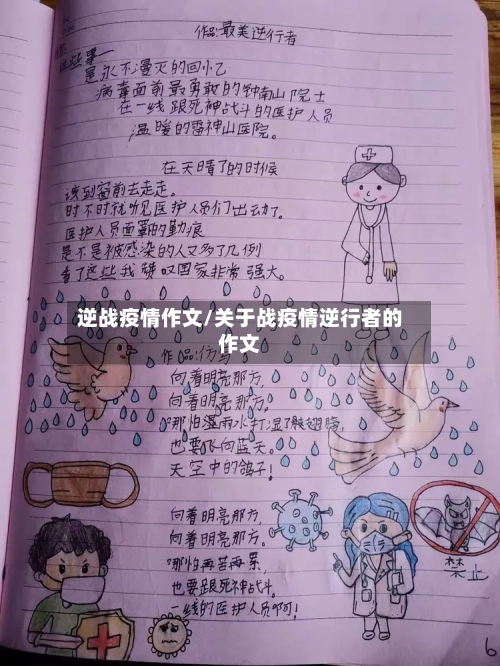 作品:最美逆行者
这些事一
是永不漫灭的回忆
病毒面前最勇敢的钟南山院士
在一线跟死神战斗的医护人员
温暖的雷神山医院。
在天晴了的时候
该到窗前去走走。
时不时就听见医护人员们出动了。
医护人员面罩的勒痕
是不是被感染的人又多了几例
看了这些我赞叹国家非常强大。
逆战疫情作文/关于战疫情逆行者的
作文
作品:仿写
向着明亮那方,
向着明亮那方。
哪怕湿雨水打湿了翅膀,
也要飞向蓝天。
天空中的鸽子!
向着明亮那方,
向着明亮那方。
哪怕再苦再累,
也要跟死神战斗。
一线的医护人员啊!
禁止
6